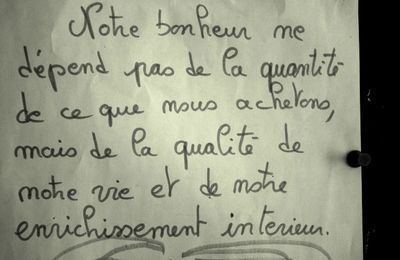 Notre bonheur ne
dépend pas de la quantité
de ce que nous achetons,
mais de la qualité de
notre vie et de notre
enrichissement interieur.